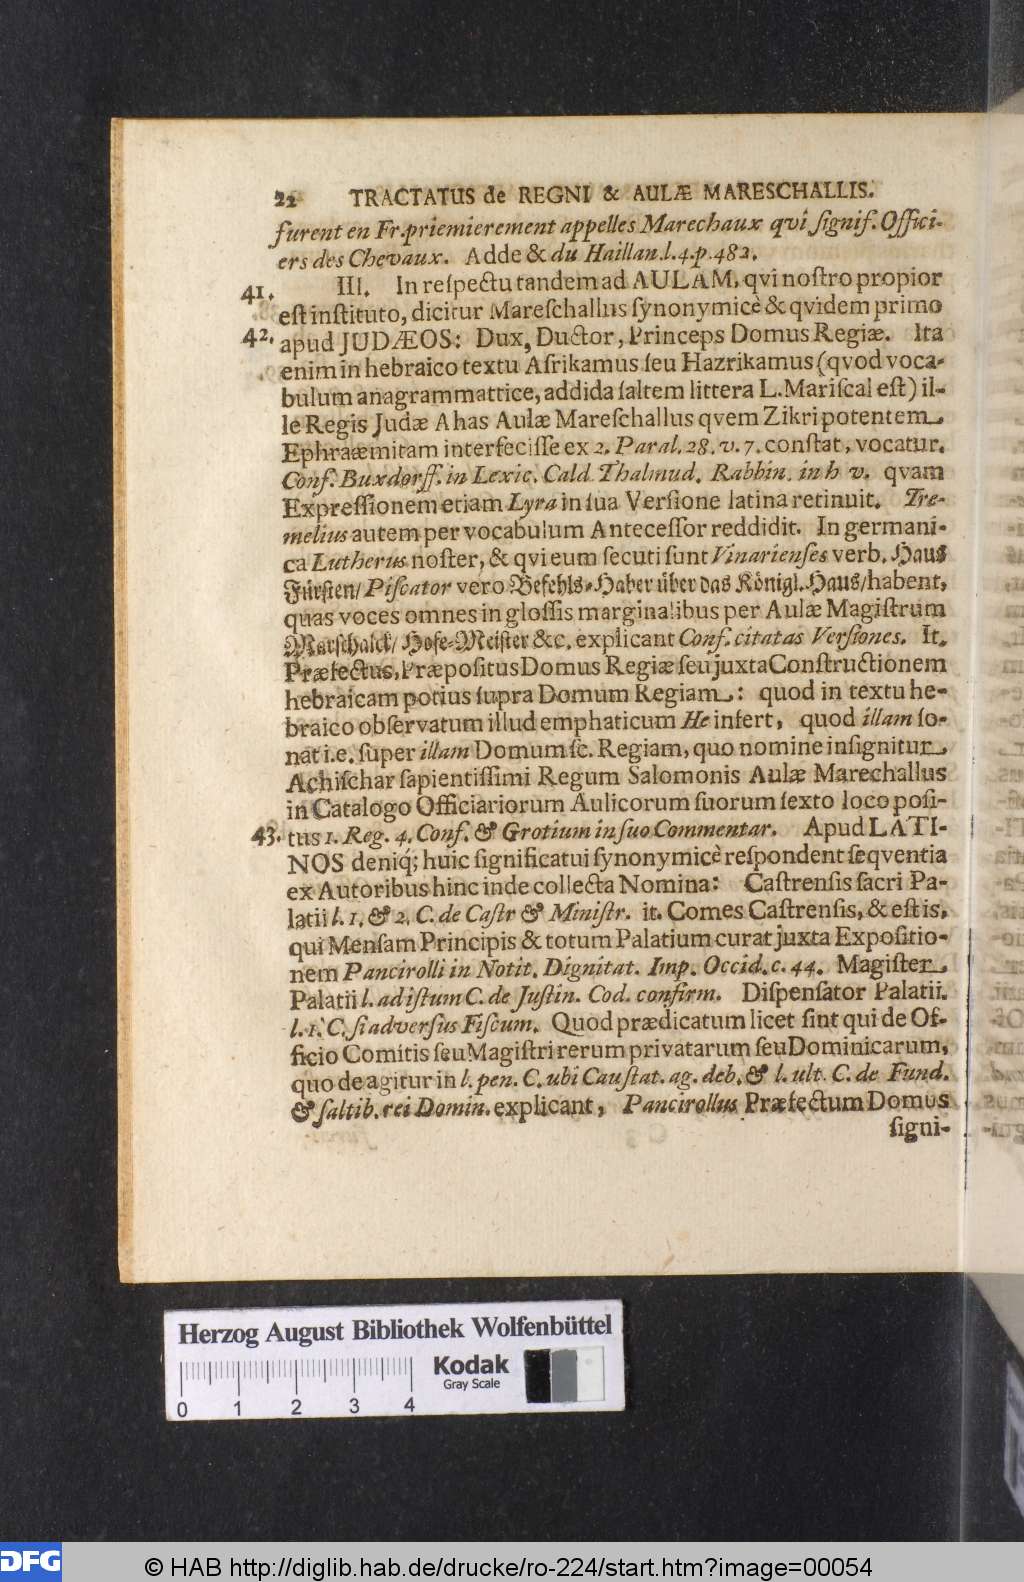 22 TRACTATUS de REGNI & AULÆ MARESCHALLIS.
furent en Fr. priemierement appelles Marechaux qvi ſignif. Offici-
ers des Chevaux. Adde & du Haillan. l. 4. p. 482.
41. III. In reſpectu tandem ad AULAM, qvi noſtro propior
eſt inſtituto, dicitur Mareſchallus ſynonymicè & qvidem primo
42. apud JUDÆOS: Dux, Ductor, Princeps Domus Regiæ. Ita
enim in hebraico textu Aſrikamus ſeu Hazrikamus (qvod voca-
bulum anagrammattice, addida ſaltem littera L. Mariſcal eſt) il-
le Regis Judæ Ahas Aulæ Mareſchallus qvem Zikri potentem
Ephraæmitam interfeciſſe ex 2. Paral. 28. v. 7. conſtat, vocatur.
Conf. Buxdorff. in Lexic. Cald. Thalmud. Rabbin. in h v. qvam
Expreſſionem etiam Lyra in ſua Verſione latina retinuit. Tre-
melius autem per vocabulum Anteceſſor reddidit. In germani-
ca Lutherus noſter, & qvi eum ſecuti ſunt Vinarienſes verb. Haus
Fürſten/ Piſcator vero Befehls-Haber über das Königl. Haus/ habent,
quas voces omnes in gloſſis marginalibus per Aulæ Magiſtrum
Marſchalck/ Hofe-Meiſter &c. explicant Conf. citatas Verſiones. It.
Præfectus, Præpoſitus Domus Regiæ ſeu juxta Conſtructionem
hebraicam potius ſupra Domum Regiam: quod in textu he-
braico obſervatum illud emphaticum He infert, quod illam ſo-
nat i.e. ſuper illam Domum ſc. Regiam, quo nomine inſignitur
Achiſchar ſapientiſſimi Regum Salomonis Aulæ Marechallus
in Catalogo Officiariorum Aulicorum ſuorum ſexto loco poſi-
43. tus 1. Reg. 4. Conf. & Grotium in ſuo Commentar. Apud LATI-
NOS deniq́; huic ſignificatui ſynonymicè reſpondent ſeqventia
ex Autoribus hinc inde collecta Nomina: Caſtrenſis ſacri Pa-
latii l. 1. & 2. C. de Caſtr & Miniſtr. it. Comes Caſtrenſis, & eſt is,
qui Menſam Principis & totum Palatium curat juxta Expoſitio-
nem Pancirolli in Notit. Dignitat. Imp. Occid. c. 44. Magiſter
Palatii l. ad iſtum C. de Juſtin. Cod. confirm. Diſpenſator Palatii.
l. 1. C. ſi adverſus Fiſcum. Quod prædicatum licet ſint qui de Of-
ficio Comitis ſeu Magiſtri rerum privatarum ſeu Dominicarum,
quo de agitur in l. pen. C. ubi Cauſtat. ag. deb. & l. ult. C. de Fund.
& ſaltib. rei Domin. explicant, Pancirollus Præfectum Domus
ſigni-
Herzog August Bibliothek Wolfenbüttel
Kodak
Gray Scale
0 1 2 3 4
DFG © HAB http://diglib.hab.de/drucke/ro-224/start.htm?image=00054